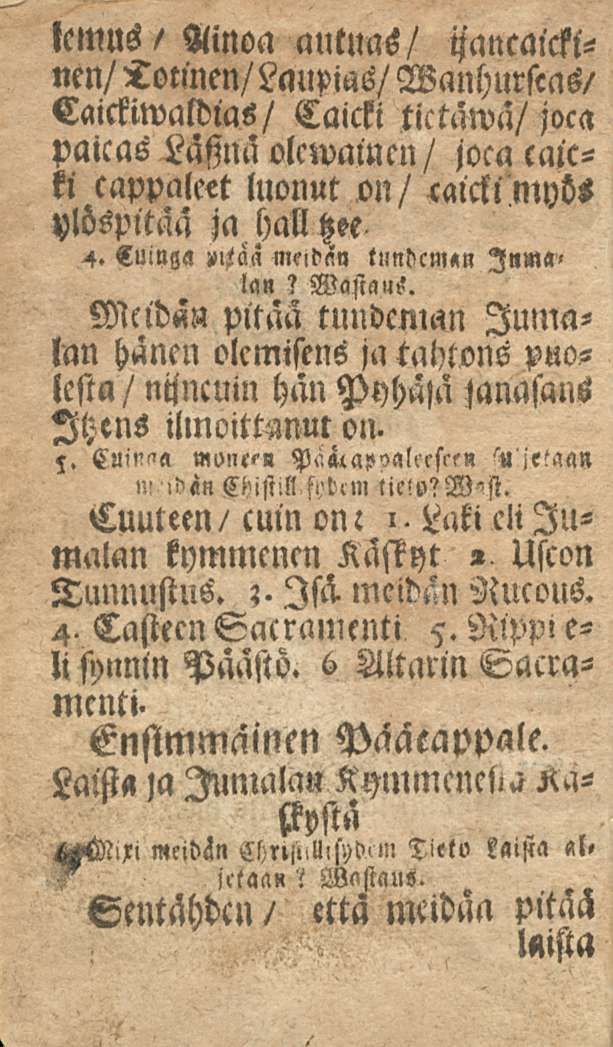 lemus / Ainoa autuas / ijancaicki-
nen / Totinen / Laupias / Wanhurscas /
Caickiwaldias / Caicki tietäwä / joca
paicas Läßnä olewainen / joca caic-
ki cappaleet luonut on / caicki myös
ylöspitää ja hallitzee.
4. Cuinga pitää meidän tundeman Juma-
lan ? Wastaus.
Meidän pitää tundeman Juma-
lan hänen olemisens ja tahtons puo-
lesta / nijncuin hän Pyhäsä sanasans
Itzens ilmoittanut on.
5. Cuinga moneen Pääcappaleeseen suljetaan
meidän Christillisydem tieto? Wast.
Cuuteen / cuin on: 1. Laki eli Ju-
malan kymmenen Käskyt 2. Uscon
Tunnustus. 3. Isä meidän Rucous.
4. Casteen Sacramenti 5. Rippi e-
li synnin Päästö. 6 Altarin Sacra-
menti.
Ensimmäinen Pääcappale.
Laista ja Jumalan Kymmenestä Kä-
skystä
6. Mixi meidän Christillisydem Tieto Laista al-
jetaan ? Wastaus.
Sentähden / että meidän pitää
laista